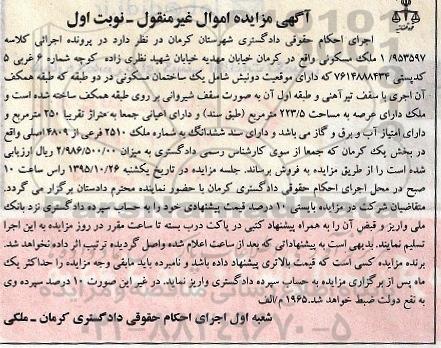 آگهی مزایده اموال غیرمنقول - نوبت اول
اجرای احکام حقوقی دادگستری شهرستان کرمان در نظر دارد در پرونده اجرائی کلاسه
۱/۹۵۳۵۹۷ ملک مسکونی واقع در کرمان خیابان مهدیه خیابان شهید نظری زاده کوچه شماره ۶ غربی ۵
کدپستی ۷۶۱۴۸۸۸۴۳۴ که دارای موقعیت دونبش شامل یک ساختمان مسکونی در دو طبقه که طبقه همکف
آن اجری با سقف تیرآهنی و طبقه اول آن به صورت سقف شیروانی بر روی طبقه همکف ساخته شده است و
ملک دارای عرصه به مساحت ۲۲۳/۵ مترمربع (طبق سند) و دارای اعیانی جمعا به متراژ تقریبا ۲۵۰ مترمربع و
دارای امتیاز آب و برق و گاز می باشد و دارای سند ششدانگ به شماره ملک ۲۵۱۰ فرعی از ۴۸۰۹ اصلی واقع
در بخش یک کرمان که جمعا از سوی کارشناس رسمی دادگستری به میزان ۲/۹۸۶/۵۰۰/۰۰۰ ریال ارزیابی
شده است را از طریق مزایده به فروش برساند. جلسه مزایده در تاریخ یکشنبه ۱۳۹۵/۱۰/۲۶ راس ساعت ۱۰
صبح در محل اجرای احکام حقوقی دادگستری کرمان با حضور نماینده محترم دادستان برگزار می گردد.
متقاضیان شرکت در مزایده بایستی ۱۰ درصد قیمت پیشنهادی خود را به حساب سپرده دادگستری نزد بانک
ملی واریز و قبض آن را به همراه پیشنهاد کتبی در پاکت درب بسته تا ساعت مقرر در روز مزایده به این اجرا
تسلیم نمایند. بدیهی است به پیشنهاداتی که بعد از ساعت اعلام شده واصل گردیده ترتیب اثر داده نخواهد شد.
برنده مزایده کسی است که قیمت بالاتری پیشنهاد داده باشد و نامبرده باید مابقی وجه مزایده را حداکثر یک
ماه پس از برگزاری مزایده به حساب سپرده دادگستری واریز نماید. در غیر این صورت ۱۰ درصد سپرده وی
به نفع دولت ضبط خواهد شد. ۱۹۶۵ م/الف
شعبه اول اجرای احکام حقوقی دادگستری کرمان - ملکی